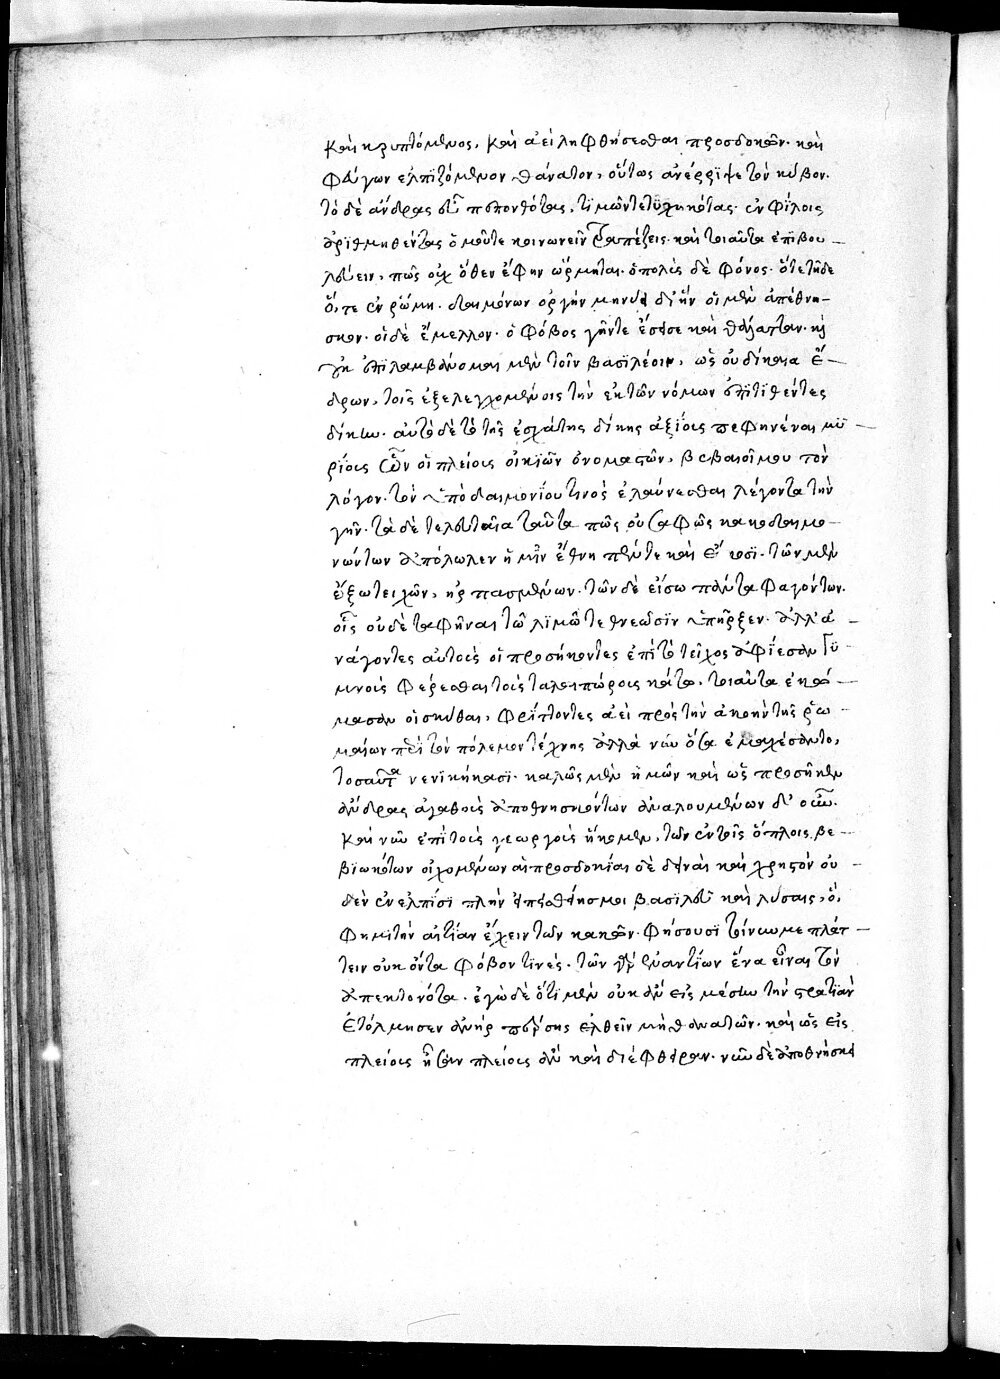 καὶ κρυπτόμενος, καὶ ἀεὶ ληφθήσεσθαι προσδοκῶν· καὶ
φεύγων ἐλπιζόμενον θάνατον, οὕτως ἀνέρριψε τὸν κύβον.
τὸ δὲ ἄνδρας εὖ πεπονθότας, τιμῶν τετυχηκότας· ἐν φίλοις
ἀριθμηθέντας ὁμοῦ τε κοινωνεῖν τραπέζης· καὶ τοιαῦτα ἐπιβου –
λεύειν, πῶς οὐχ ὅθεν ἔφην ὥρμηται· ὁ πολὺς δὲ φόνος· ὅ τε τῇδε
ὅ, τε ἐν ῥώμῃ· δαιμόνων ὀργὴν μηνύει δι' ἣν οἱ μὲν ἀπέθνη –
σκον· οἱ δὲ ἔμελλον· ὁ φόβος γῆν τε ἔσεισε καὶ θάλατταν· καὶ
μὴ ἐπιλαμβάνομαι μὲν τοῖν βασιλέοιν, ὡς οὐ δίκαια ἔ –
δρων, τοῖς ἐξελεγχομένοις τὴν ἐκ τῶν νόμων ἐπιτιθέντες
δίκην· αὐτὸ δὲ τὸ τῆς ἐσχάτης δίκης ἀξίοις πεφηνέναι μυ –
ρίοις ὧν οἱ πλείους οἰκιῶν ὀνομαστῶν, βεβαιοῖ μου τὸν
λόγον· τὸν ὑπὸ δαιμονίου τινὸς ἐλαύνεσθαι λέγοντα τὴν
γῆν· τὰ δὲ τελευταῖα ταῦτα πῶς οὐ σαφῶς κακοδαιμο –
νούντων ἀπόλωλεν ἡμῖν ἔθνη πέντε καὶ εἴκοσι· τῶν μὲν
ἔξω τειχῶν, ἡρπασμένων· τῶν δὲ εἴσω πάντα φαγόντων.
οἷς οὐδὲ ταφῆναι τῷ λιμῷ τεθνεῶσιν ὑπῆρξεν· ἀλλ' ἀ –
νάγοντες αὐτοὺς οἱ προσήκοντες ἐπὶ τὸ τεῖχος ἀφίεσαν γυ –
μνοὺς φέρεσθαι τοὺς ταλαιπώρους κάτω, τοιαῦτα ἐκώ –
μασαν οἱ σκύθαι, φρίττοντες ἀεὶ πρὸς τὴν ἀκοὴν τῆς ῥω –
μαίων περὶ τὸν πόλεμον τέχνης ἀλλὰ νῦν ὅσα ἐμαχέσαντο,
τοσαῦτα νενικήκασι· καλῶς μὲν ἡμῶν καὶ ὡς προσῆκεν
ἄνδρας ἀγαθοὺς ἀποθνησκόντων ἀναλουμένων δ' οὖν.
καὶ νῦν ἐπὶ τοὺς γεωργοὺς ἥκομεν, τῶν ἐν τοῖς ὅπλοις βε –
βιωκότων οἰχομένων αἱ προσδοκίαι δὲ δειναὶ καὶ χρηστὸν οὐ
δὲν ἐν ἐλπίσι πλὴν ἐπεσθήσῃ μοι βασιλεῦ καὶ λύσαις, ὅ,
φημι τὴν αἰτίαν ἔχειν τῶν κακῶν· φήσουσι τοίνυν με πλάτ –
τειν οὐκ ὄντα φόβον τινές· τῶν γὰρ ἐναντίων ἕνα εἶναι τὸν
ἀπεκτονότα· ἐγὼ δὲ ὅτι μὲν οὐκ ἂν εἰς μέσην τὴν στρατιὰν
ἐτόλμησεν ἀνὴρ πέρσης ἐλθεῖν μὴ θανατῶν· καὶ ὡς εἰς
πλείους ἢ τὸν πλείους ἂν καὶ διέφθειρον· νῦν δὲ ἀποθνήσκει